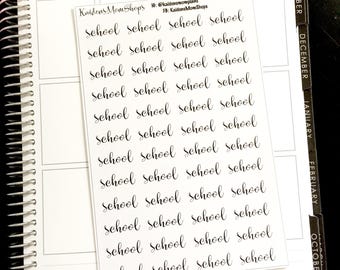 KaidensMomShops
IG: @kaidensmomplans
FB: KaidensMomShops
school school school school
school school school school
school school school school
school school school school
school school school school
school school school school
school school school school
school school school school
school school school school
school school school school
school school school school
school school school school
school school school school
DECEMBER
JANUARY
FEBRUARY